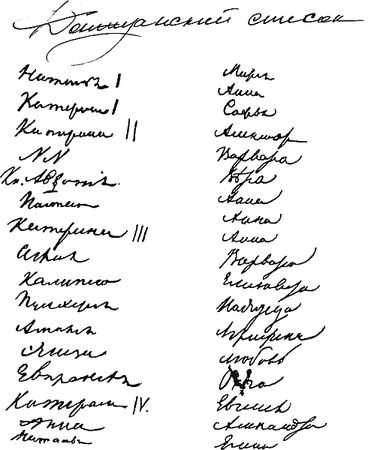 Донжуанский список
Наталья I
Катерина I
Катерина II
NN
Кн. Авдотия.
Настасья
Катерина III
Аглая
Калипсо
Пулхерия
Амалия
Элиза
Евпраксея
Катерина IV.
Анна
Наталья
Мария
Анна
Софья
Александра
Варвара
Вѣра
Анна
Анна
Анна
Варвара
Елизавета
Надежда
Аграфена
Любовь
Ольга
Евгения
Александра
Елена